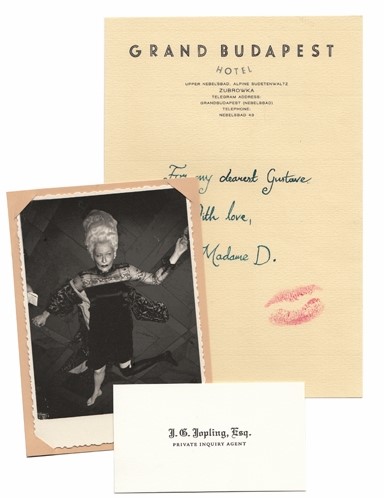 GRAND BUDAPEST
HOTEL
UPPER NEBELSBAD, ALPINE SUDETENWALTZ
ZUBROWKA
TELEGRAM ADDRESS:
GRANDBUDAPEST (NEBELSBAD)
TELEPHONE:
NEBELSBAD 49
For my dearest Gustave
With love,
Madame D.
J. G. Jopling, Esq.
PRIVATE INQUIRY AGENT